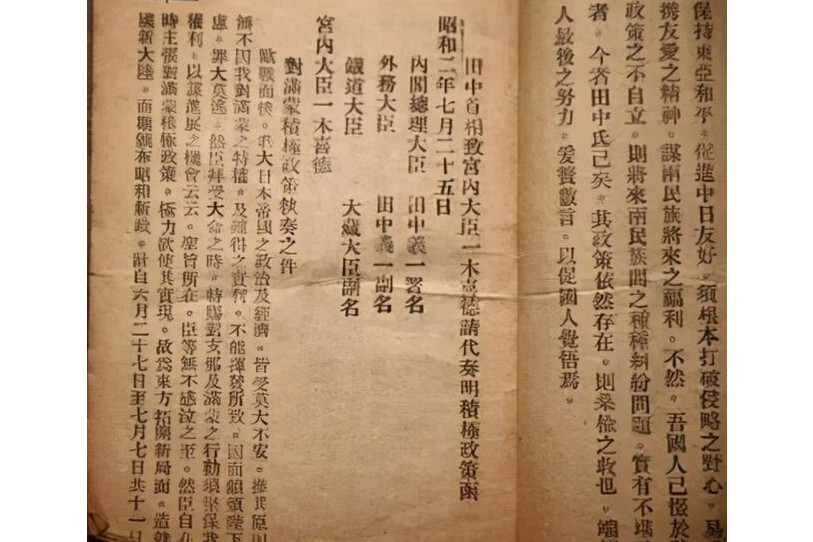 保持東亞和平。促進中日友好。須根本打破侵略之野心。易
攜友愛之精神。謀兩民族將來之福利。不然。吾國人已懲於
政策之不自立。則將來兩民族間之種種糾紛問題。實有不堪
者。今者田中氏已矣。其政策依然存在。則桑榆之收也。端
人最後之努力。爰贅數言。以促國人覺悟焉。
田中首相致宮內大臣一木喜德請代奏明積極政策函
昭和二年七月二十五日
內閣總理大臣 田中義一署名
外務大臣 田中義一副名
鐵道大臣 大藏大臣副名
宮內大臣一木喜德
對滿蒙積極政策執奏之件
歐戰而後。我大日本帝國之政治及經濟。皆受莫大不安。推其原因
無不因我對滿蒙之特權。及確得之實利。不能揮發所致。因而頗煩陛下
慮。罪大莫逃。然臣拜受大命之時。特賜對支那及滿蒙之行動須堅保我
權利。以謀進展之機會云云。聖旨所在。臣等無不感泣之至。然臣自
時主張對滿蒙積極政策。極力欲使其實現。故為東方拓開新局面。造就
國新大陸。而期頒布昭和新政。計自六月二十七日至七月七日共十一日